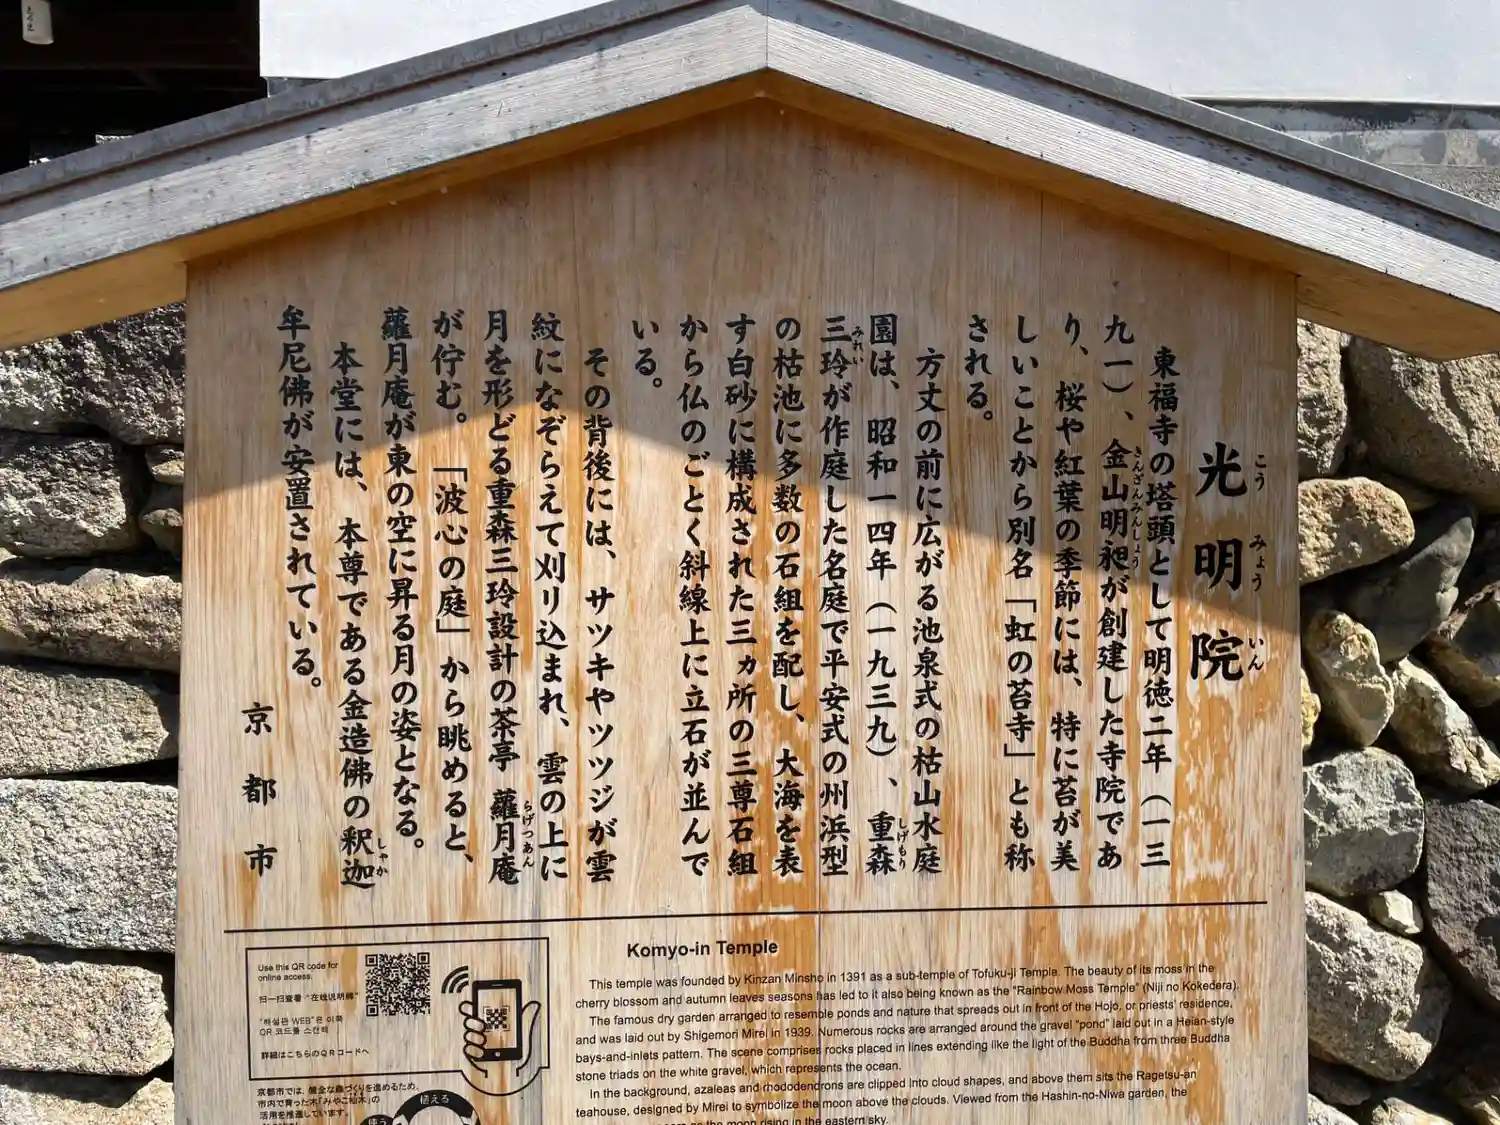 光明院
こうみょういん
東福寺の塔頭として明徳二年（一三
九一）、金山明昶が創建した寺院であ
きんざんみんしょう
り、桜や紅葉の季節には、特に苔が美
しいことから別名「虹の苔寺」とも称
される。
方丈の前に広がる池泉式の枯山水庭
園は、昭和一四年（一九三九）、重森
しげもり
三玲が作庭した名庭で平安式の州浜型
みれい
の枯池に多数の石組を配し、大海を表
す白砂に構成された三ヵ所の三尊石組
から仏のごとく斜線上に立石が並んで
いる。
その背後には、サツキやツツジが雲
紋になぞらえて刈り込まれ、雲の上に
月を形どる重森三玲設計の茶亭 蘿月庵
らげつあん
が佇む。「波心の庭」から眺めると、
蘿月庵が東の空に昇る月の姿となる。
本堂には、本尊である金造佛の釈迦
しゃか
牟尼佛が安置されている。
京都市
Use this QR code for
online access.
扫一扫查看“在线说明牌”
"해설판 WEB"은 이쪽
QR 코드를 스캔해
詳細はこちらのQRコードへ
京都市では、健全な森づくりを進めるため、
市内で育った木「みやこ杣木」の
活用を推進しています。
植える
使う
Komyo-in Temple
This temple was founded by Kinzan Minsho in 1391 as a sub-temple of Tofuku-ji Temple. The beauty of its moss in the
cherry blossom and autumn leaves seasons has led to it also being known as the "Rainbow Moss Temple" (Niji no Kokedera).
The famous dry garden arranged to resemble ponds and nature that spreads out in front of the Hojo, or priests' residence,
and was laid out by Shigemori Mirei in 1939. Numerous rocks are arranged around the gravel "pond" laid out in a Heian-style
bays-and-inlets pattern. The scene comprises rocks placed in lines extending like the light of the Buddha from three Buddha
stone triads on the white gravel, which represents the ocean.
In the background, azaleas and rhododendrons are clipped into cloud shapes, and above them sits the Ragetsu-an
teahouse, designed by Mirei to symbolize the moon above the clouds. Viewed from the Hashin-no-Niwa garden, the
as the moon rising in the eastern sky.